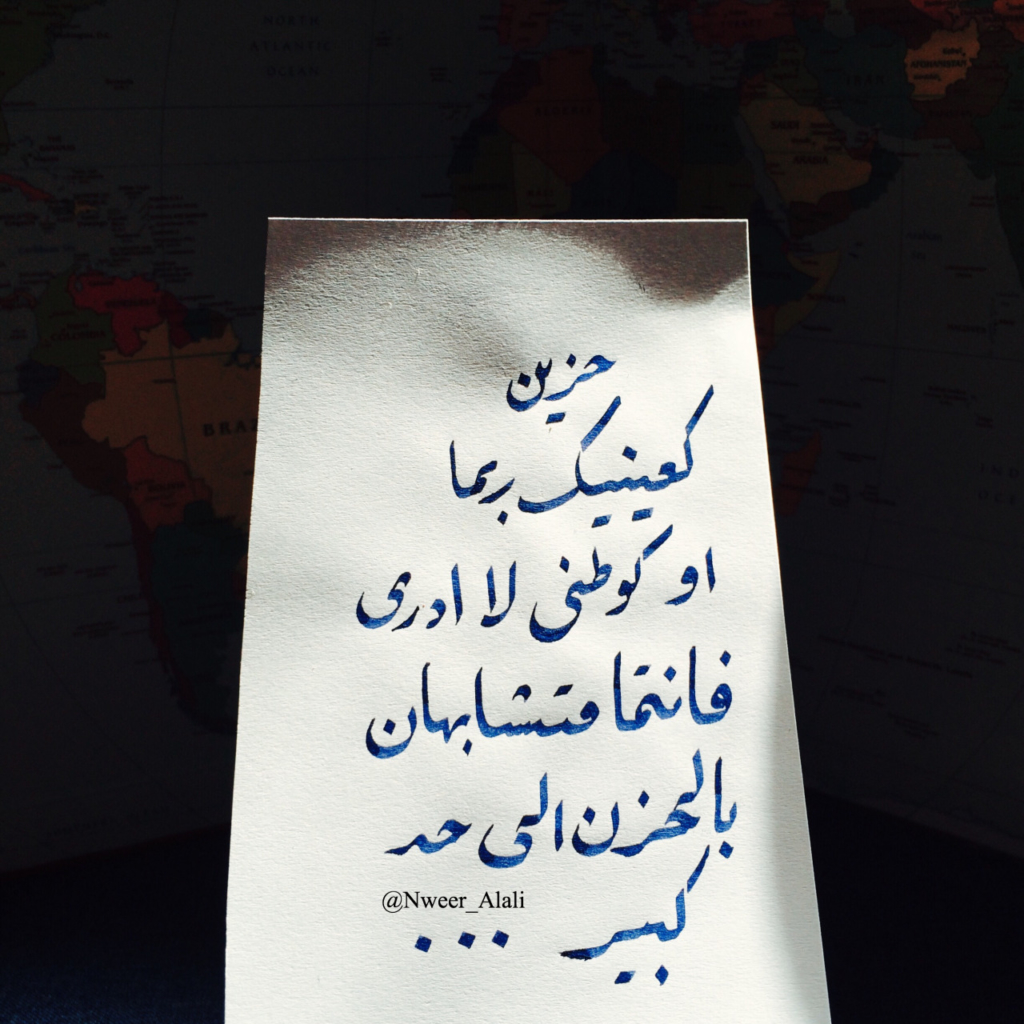 NORTH
ATLANTIC
OCEAN
حزين
كعينيك ربما
او كوطني لا ادري
فانتما متشابهان
بالحزن الى حد
كبير
@Nweer_Alali
...